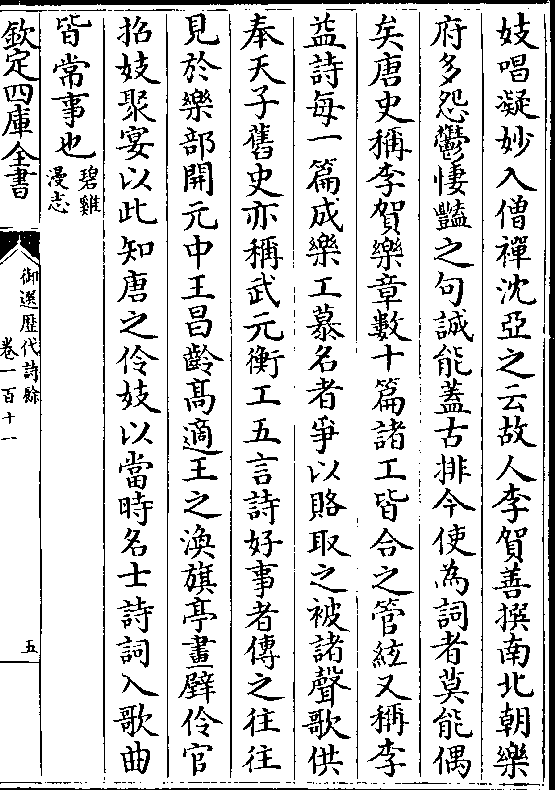 妓唱凝妙入僧禪沈亞之云故人李賀善撰南北朝樂
府多怨鬱悽豔之句誠能蓋古排今使為詞者莫能偶
矣唐史稱李賀樂章數十篇諸工皆合之管絃又稱李
益詩每一篇成樂工慕名者爭以賂取之被諸聲歌供
奉天子舊史亦稱武元衡工五言詩好事者傳之往往
見於樂部開元中王昌齡髙適王之渙旗亭畫壁伶官
招妓聚宴以此知唐之伶妓以當時名士詩詞入歌曲
皆常事也碧雞
漫志
欽定四庫全書
御選歴代詩餘
卷一百十一
五